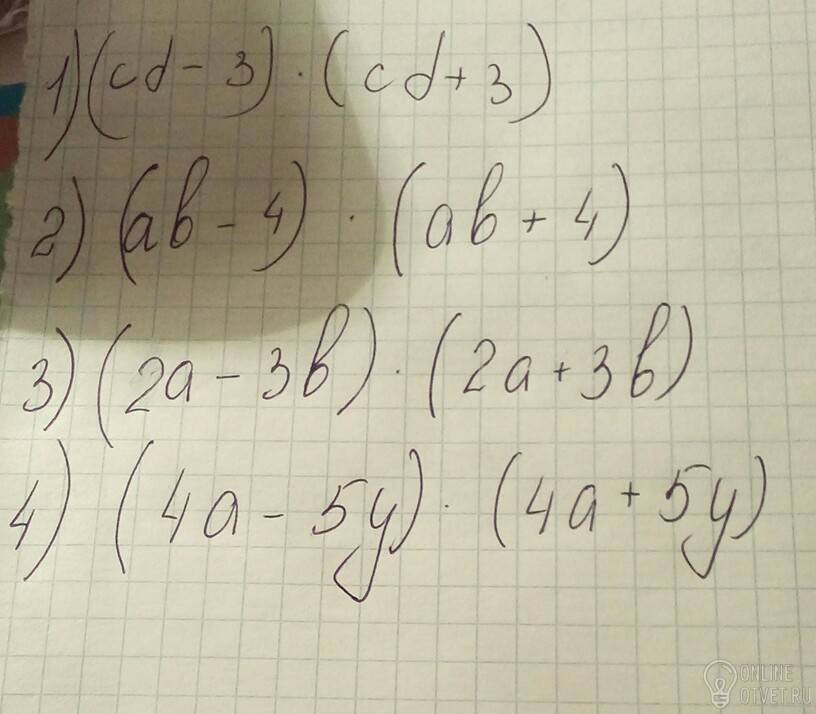 1) (cd - 3) · (cd + 3)
2) (ab - 4) · (ab + 4)
3) (2a - 3b) · (2a + 3b)
4) (4a - 5y) · (4a + 5y)
ONLINE
OTVET.RU